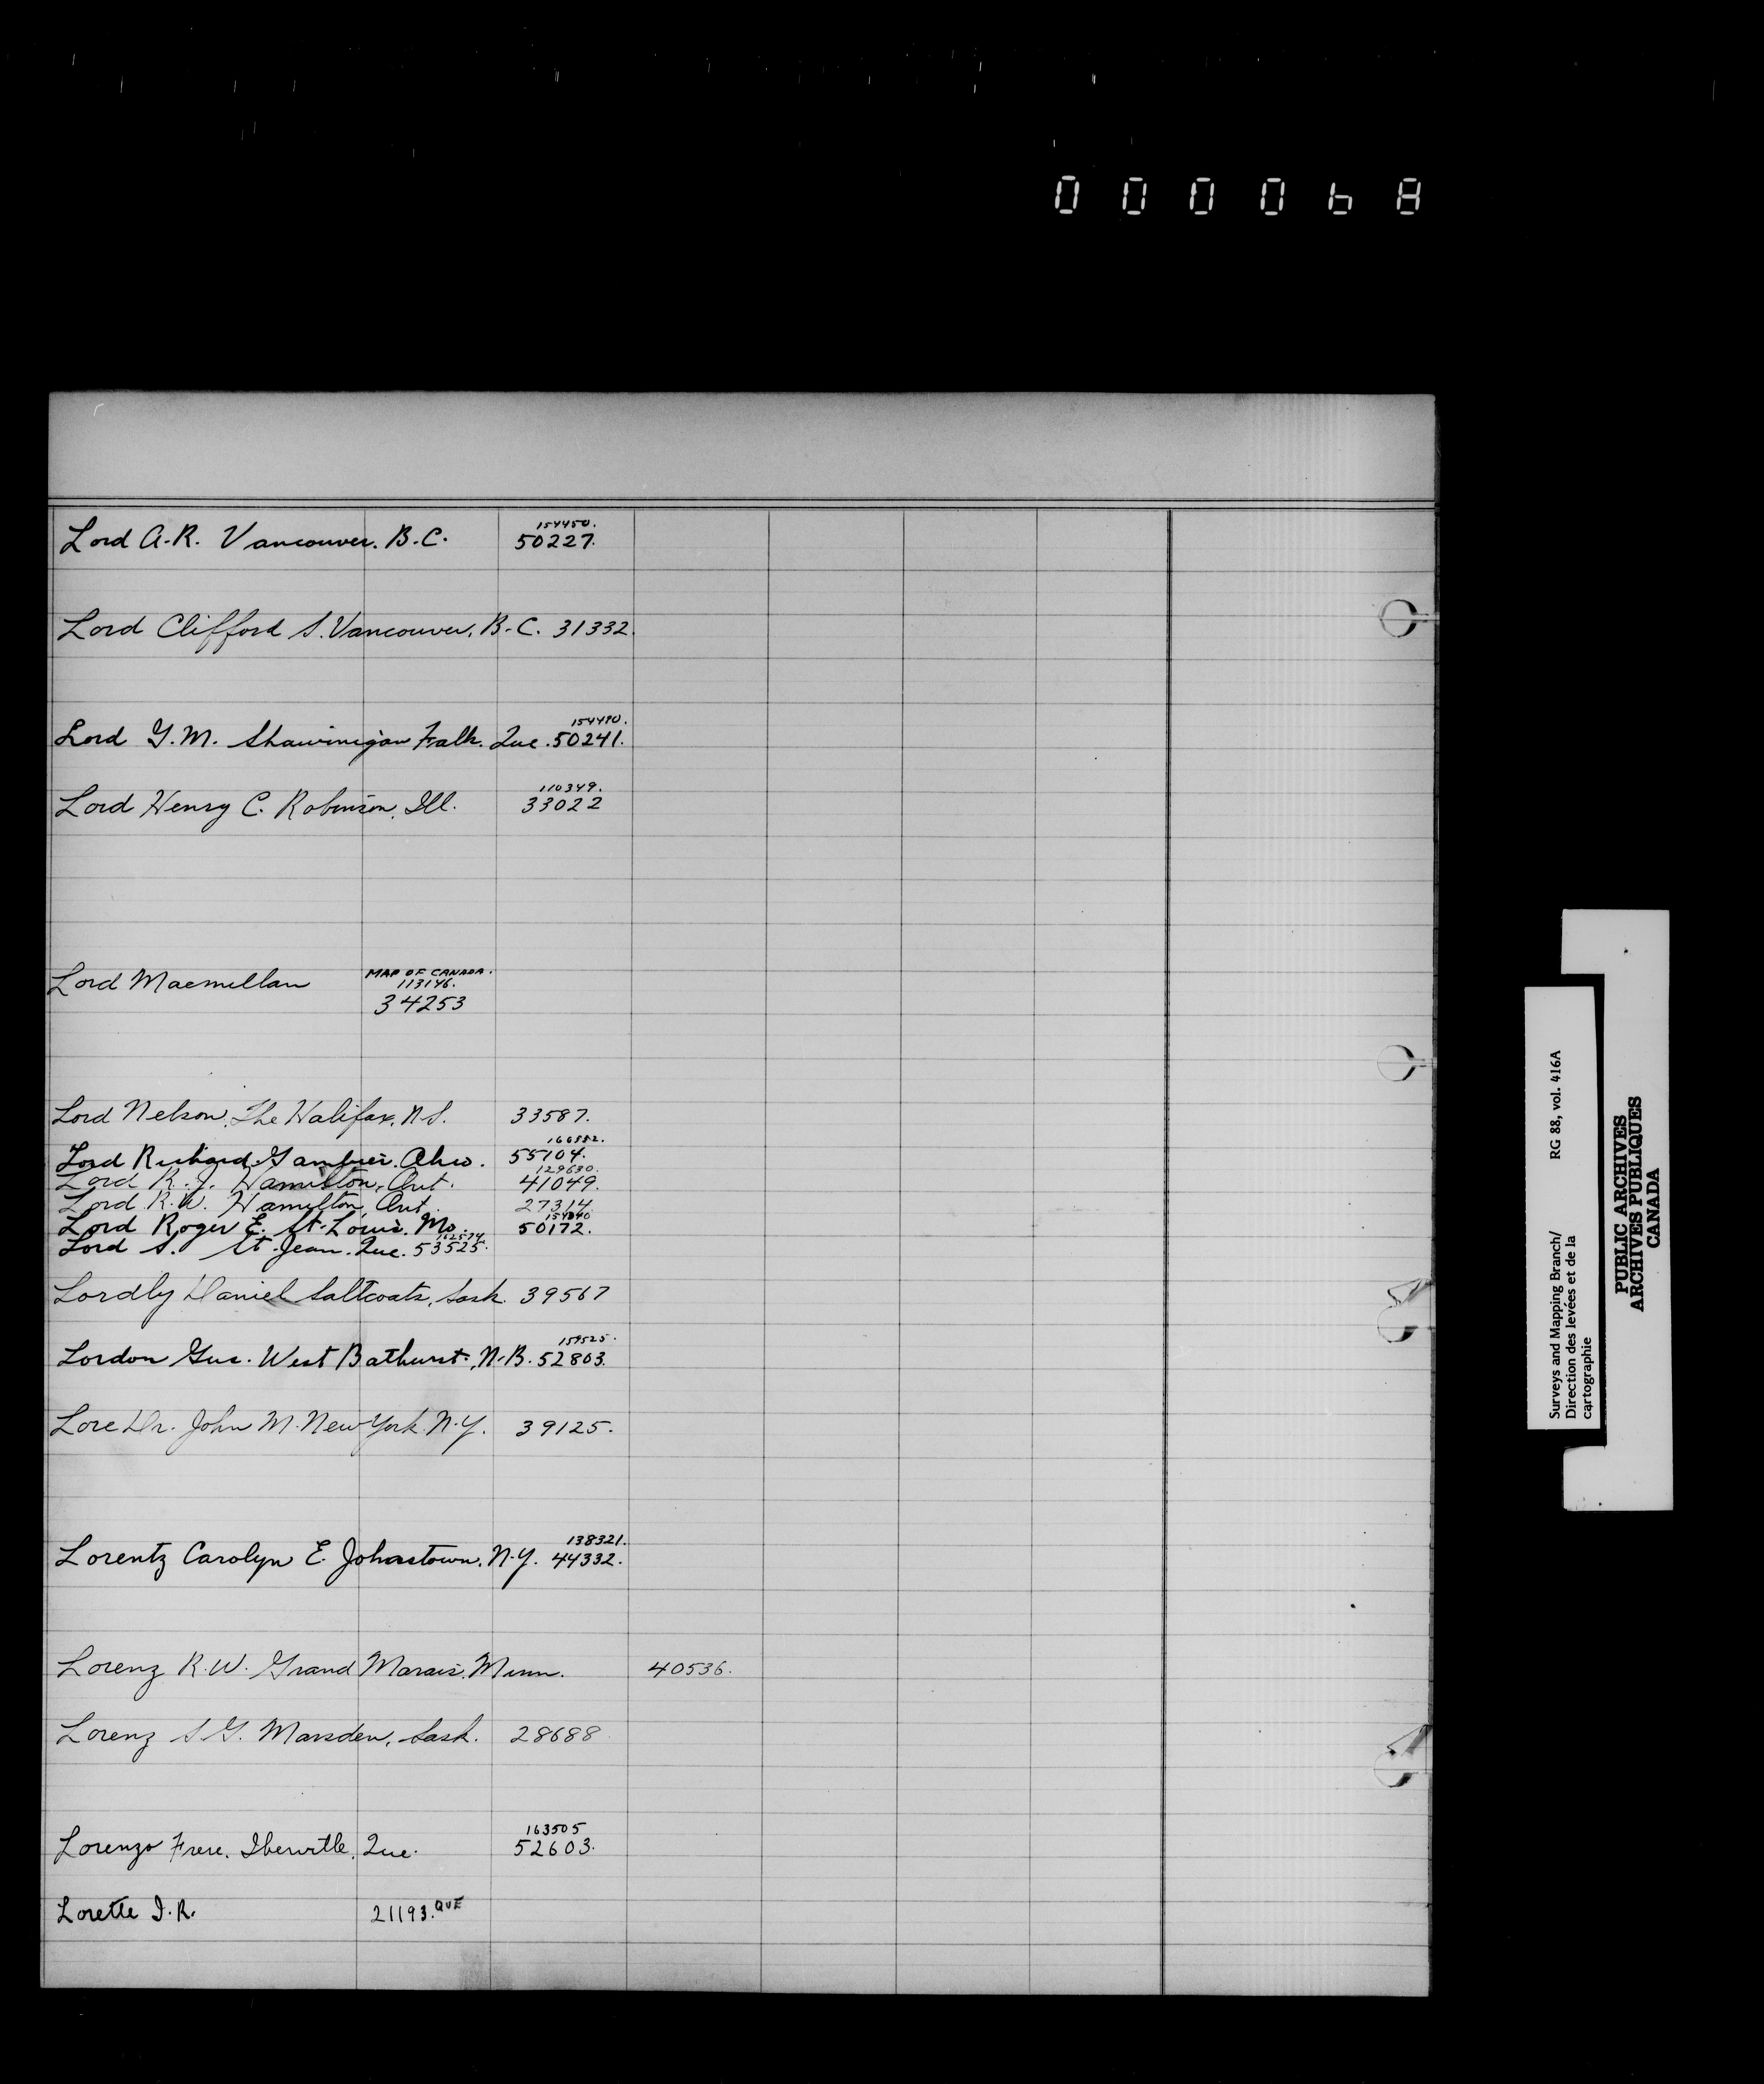 000068
154450.
Lord A.R. Vancouver. B.C. 50227.
Lord Clifford S. Vancouver, B.C. 31332.
154490.
Lord G.M. Shawinigan Falls. Que. 50241.
110349.
Lord Henry C. Robinson, Ill. 33022
Lord Macmillan MAP OF CANADA.
113146.
34253
Lord Nelson, The Halifax, N.S. 33587.
Lord Richard Gambier. Ohio. 55104.
129630.
Lord R.J. Hamilton, Ont. 41049.
Lord R.W. Hamilton, Ont. 27314
Lord Roger E. St. Louis. Mo. 50172.
Lord S. St. Jean. Que. 53525.
Lordly Daniel Saltcoats, Sask. 39567
159525.
Lordon Gus. West Bathurst, N.B. 52803.
Lore Dr. John M. New York. N.Y. 39125.
138321.
Lorentz Carolyn E. Johnstown, N.Y. 44332.
Lorenz R.W. Grand Marais, Minn. 40536.
Lorenz S.G. Marsden, Sask. 28688
163505
Lorenzo Frere. Iberville, Que. 52603.
Lorette I.R. 21193. QUE
Surveys and Mapping Branch/ RG 88, vol. 416A
Direction des levées et de la
cartographie
PUBLIC ARCHIVES
ARCHIVES PUBLIQUES
CANADA